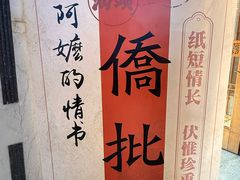 阿嬷的情书
僑批
纸短情长
伏惟珍重